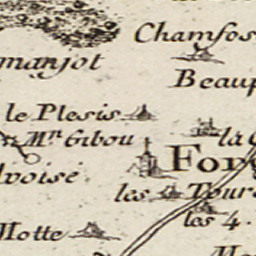 Chamfos
manjot
Beaup
le Plesis
Mn Gibou
la C
For
lvoise
les Tours
les 4.
Motte